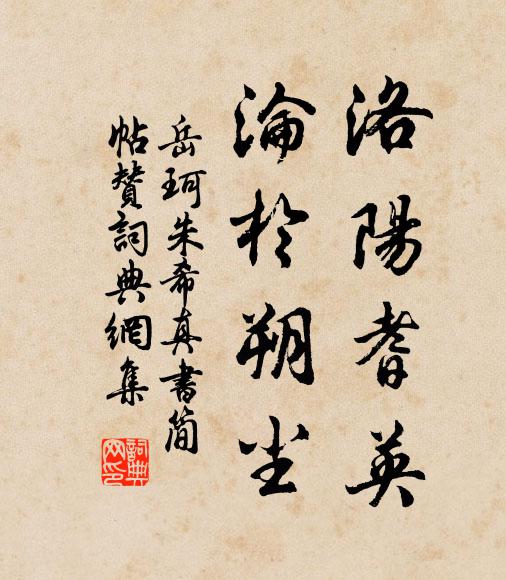 洛陽耆英
淪於朔尘
岳珂朱希真書简
帖赞詞典網集
詞典网印